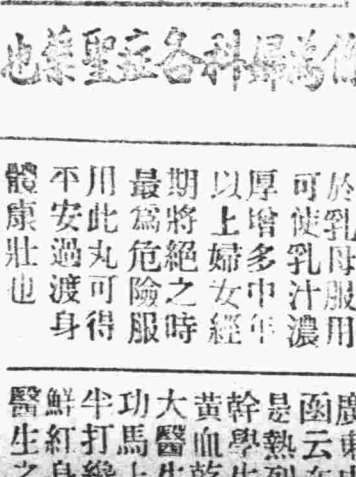 為婦科各症聖藥也
於乳母服用
可使乳汁濃
厚增多中年
以上婦女經
期將絕之時
最為危險服
用此丸可得
平安過渡身
體康壯也
廣東
函云
是熱列
幹學生
黃血乾
大醫生
功馬上
半打纔
鮮紅身
醫生之